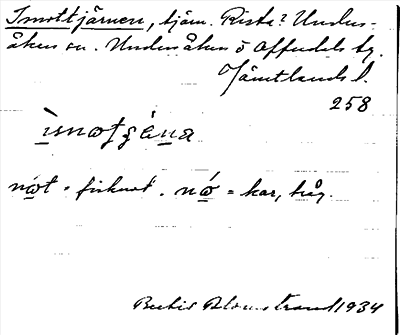 Imottjärnen, tjärn. Rista? Unders-
åkers sn. Undersåkers o Offerdals tg.
Jämtlands l.
258
ìsmotʃɛ́na
nöt = fisknot. nó = kar, tråg.
Bertil Blomstrand 1934